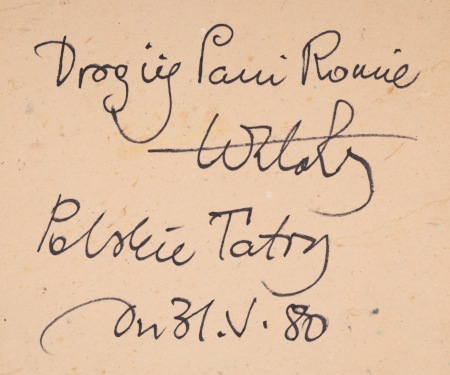 Drogiej Pani Romie
Polskie Tatry
Dn 31.V.80